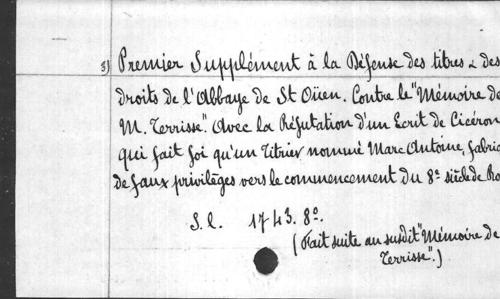 3) Premier Supplément à la Défense des titres & des
droits de l'Abbaye de St Oüen. Contre le "Mémoire de
M. Terrisse". Avec la Réfutation d'un Ecrit de Cicéron
qui fait foi qu'un Titrier nommé Marc Antoine, fabric
de faux privilèges vers le commencement du 8e siècle de Ro
S.l. 1743. 8o.
(Fait suite au susdit "Mémoire de
Terrisse".)